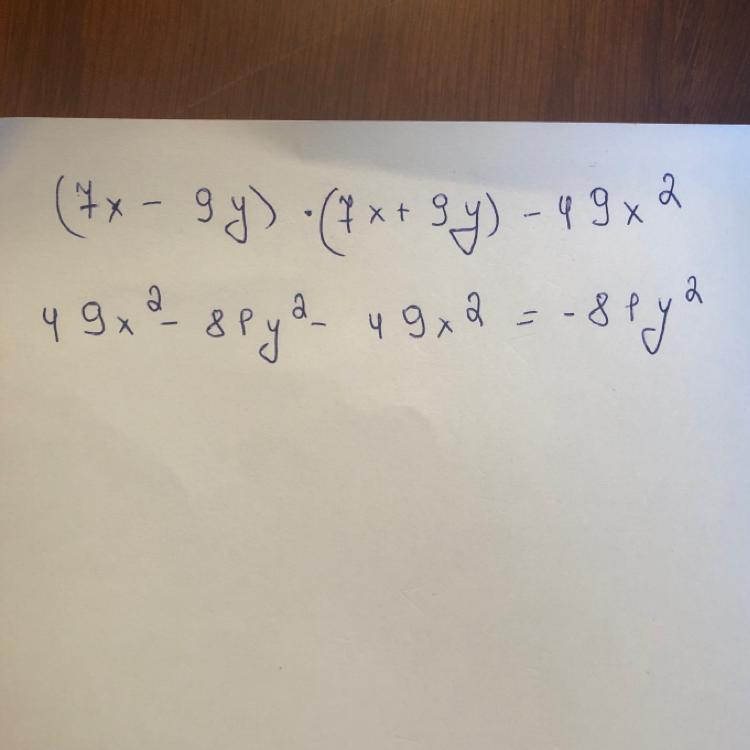 (7x - 9y) · (7x + 9y) - 49x²
49x² - 81y² - 49x² = -81y²